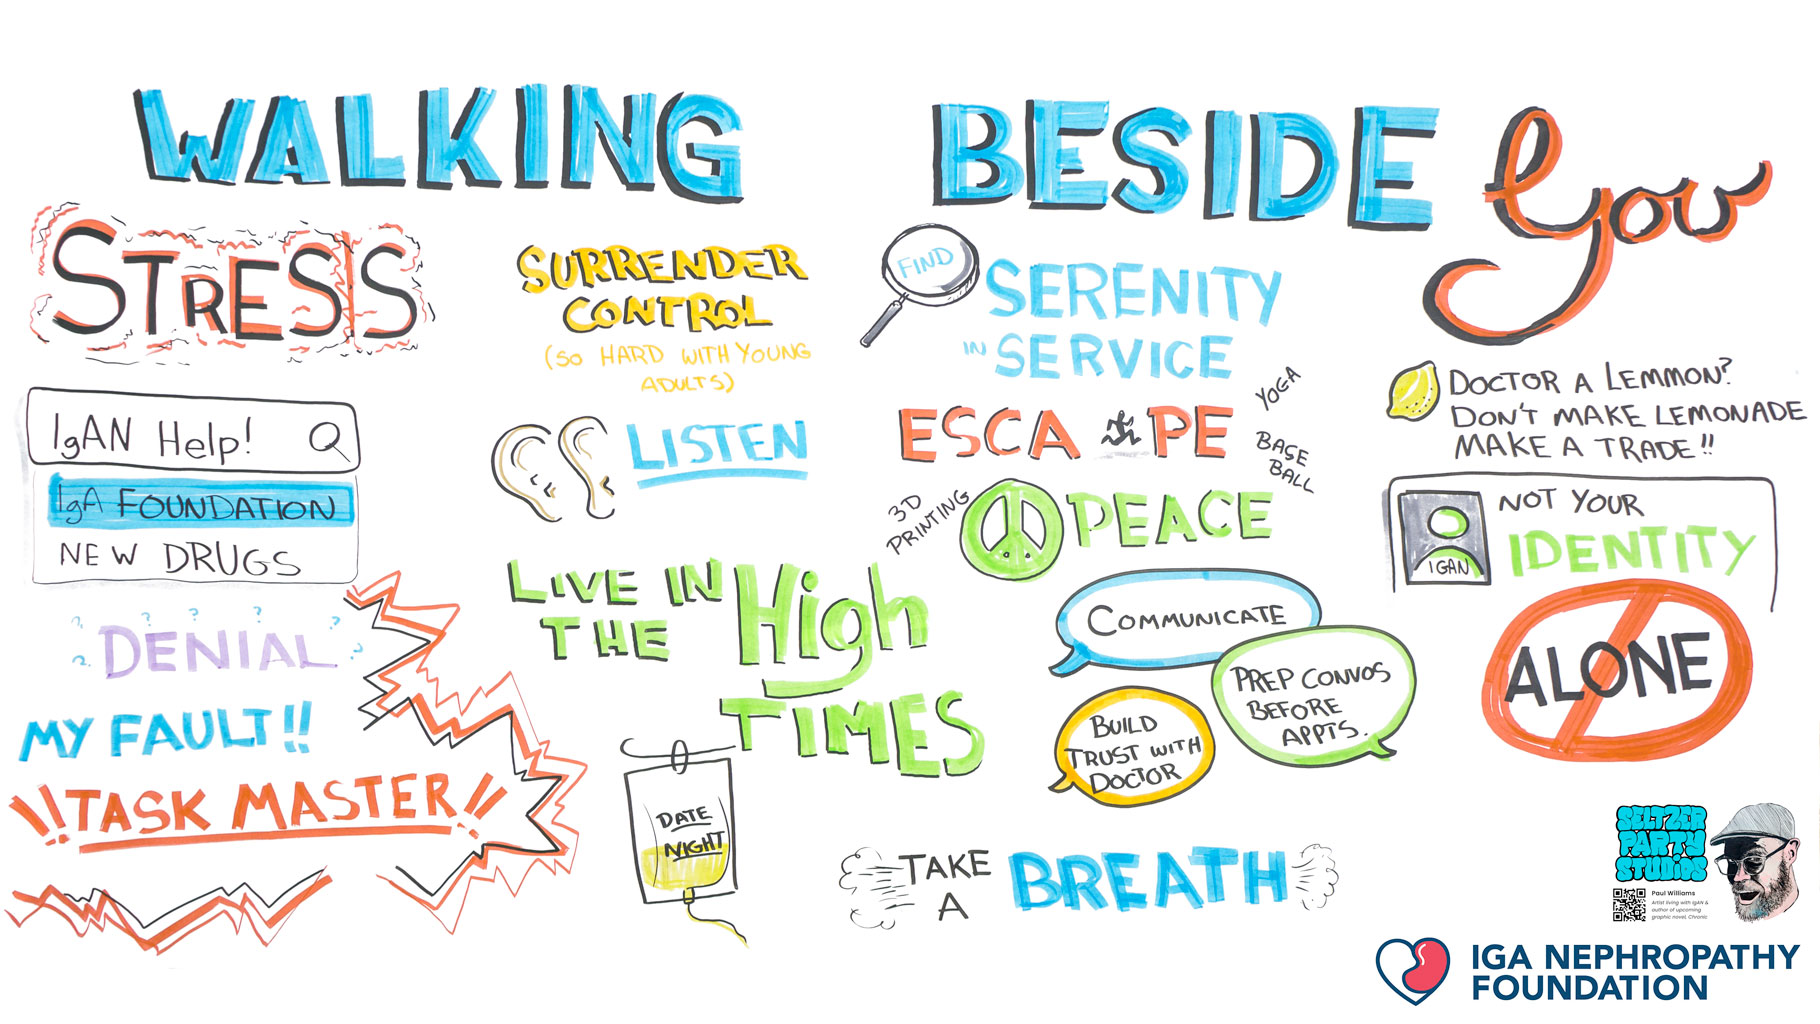 WALKING BESIDE You
STRESS
IgAN Help!
IgA FOUNDATION
NEW DRUGS
? ? ? ? ? ? ?
DENIAL
MY FAULT!!
!!TASK MASTER!!
SURRENDER
CONTROL
(SO HARD WITH YOUNG
ADULTS)
LISTEN
LIVE IN
THE High
TIMES
DATE
NIGHT
FIND
SERENITY
IN SERVICE
ESCAPE
YOGA
BASE
BALL
3D
PRINTING
PEACE
COMMUNICATE
PREP CONVOS
BEFORE
APPTS.
BUILD
TRUST WITH
DOCTOR
TAKE
A BREATH
DOCTOR A LEMMON?
DON'T MAKE LEMONADE
MAKE A TRADE!!
NOT YOUR
IDENTITY
IGAN
ALONE
SELTZER
PARTY
STUDIOS
Paul Williams
Artist living with IgAN &
author of upcoming
graphic novel, Chronic
IGA NEPHROPATHY
FOUNDATION